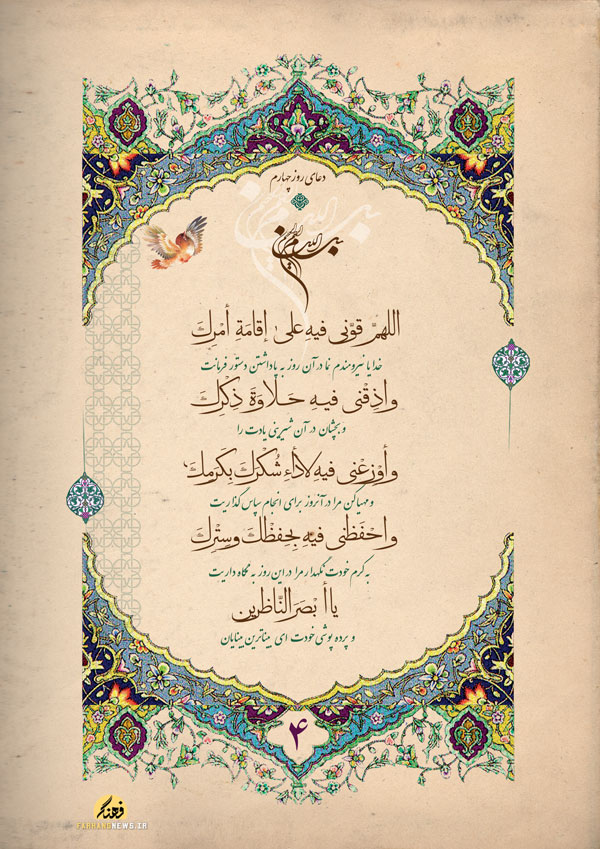 دعای روز چهارم
بسم الله الرحمن الرحیم
اللهمَّ قوِّنی فیهِ علی إقامَةِ أمْرِكَ
خدایا نیرومندم نما در آن روز به پاداشتن دستور فرمانت
واذِقْنی فیهِ حَلاوَةَ ذِكْرِكَ
و بچشان در آن شیرینی یادت را
وأوْزِعْنی فیهِ لأداءِ شُكْرَكَ بِكَرمِكَ
و مهیا کن مرا در آنروز برای انجام سپاس گذاریت
واحْفَظنی فیهِ بِحِفظْكَ وسِتْرِكَ
به کرم خودت نگهدار مرا در این روز به نگاه داریت
یا أبْصَرَ النّاظرین
و پرده پوشی خودت ای بیناترین بینایان
۴
فرهنگ
FARHANGNEWS.IR